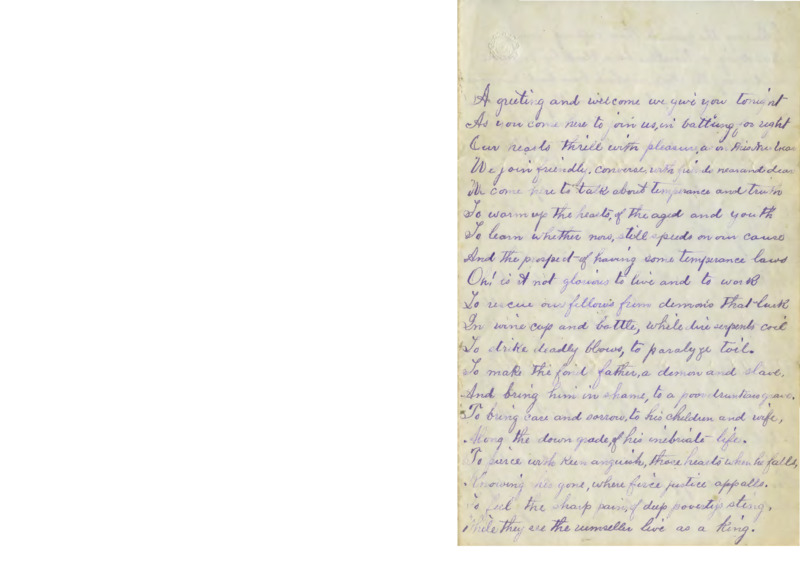 A greeting and welcome we give you tonight
As you come here to join us, in battling for right
Our hearts thrill with pleasure, as in this New Year
We join friendly, converse, with friends near and dear
We come here to talk about temperance and truth
To warm up the hearts, of the aged and youth
To learn whether now, still speeds on our cause
And the prospect of having some temperance laws
Oh! is it not glorious to live and to work
To rescue our fellows from demons that lurk
In wine cup and bottle, while dire serpents coil
To strike deadly blows, to paralyze toil.
To make the fond father, a demon and slave,
And bring him in shame, to a poor drunkards grave.
To bring care and sorrow, to his children and wife,
Along the down grade, of his inebriate life.
To pierce with keen anguish, those hearts when he falls,
Knowing he's gone, where fierce justice appalls.
To feel the sharp pain, of deep povertys sting,
While they see the rumseller live as a king.